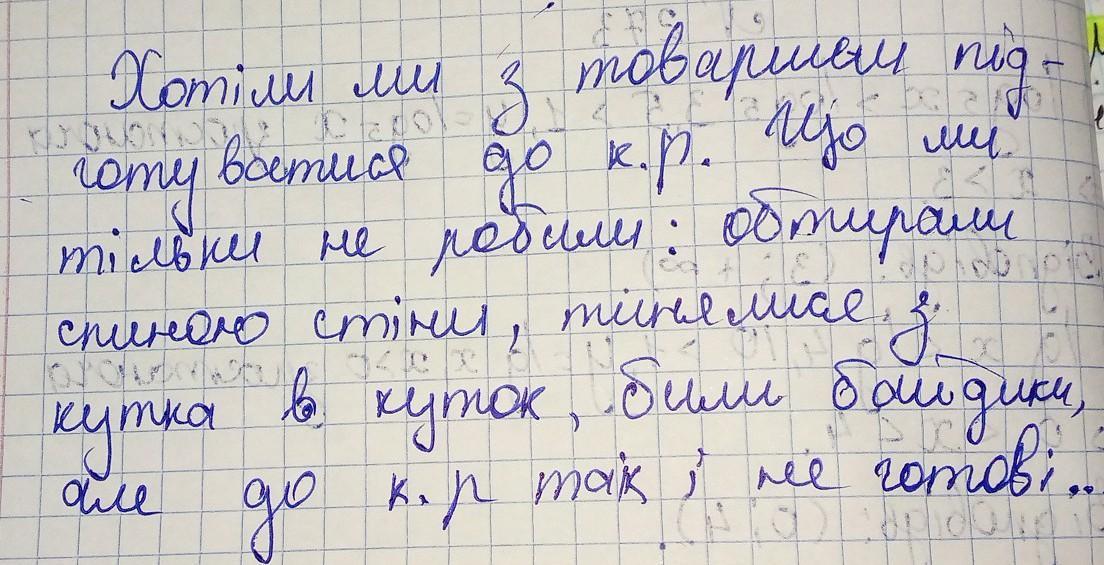 Хотіли ми з товаришем під-
готуватися до к.р. Що ми
тільки не робили: обтирали
спиною стіни, тинялися з
кутка в куток, били байдики,
але до к.р так і не готові..